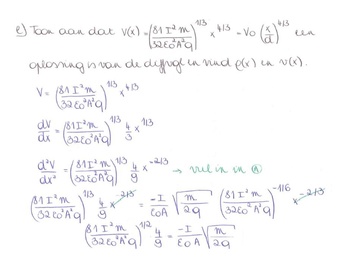 e) Toon aan dat V(x) = (81 I² m / 32 ε₀² A² q)^1/3 x^4/3 = V₀ (x/d)^4/3 een
oplossing is van de difvgl en vind ρ(x) en v(x).
V = (81 I² m / 32 ε₀² A² q)^1/3 x^4/3
dV/dx = (81 I² m / 32 ε₀² A² q)^1/3 4/3 x^1/3
d²V/dx² = (81 I² m / 32 ε₀² A² q)^1/3 4/9 x^-2/3 → vul in in Ⓐ
(81 I² m / 32 ε₀² A² q)^1/3 4/9 x^-2/3 = -I/ε₀A √(m/2q) (81 I² m / 32 ε₀² A² q)^-1/6 x^-2/3
(81 I² m / 32 ε₀² A² q)^1/2 4/9 = -I/ε₀A √(m/2q)